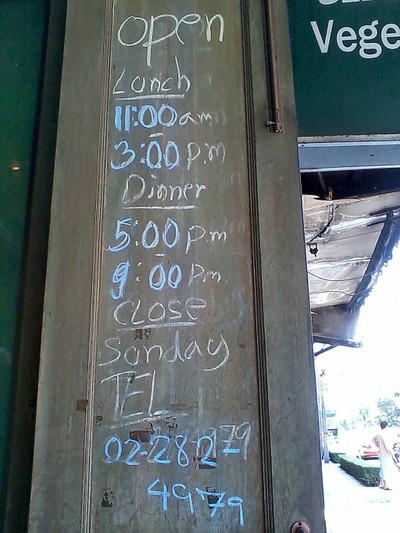 open
Lunch
11:00 am
3:00 p.m
Dinner
5:00 p.m
9:00 p.m.
Close
Sonday
TEL
02-282
4979
Vege